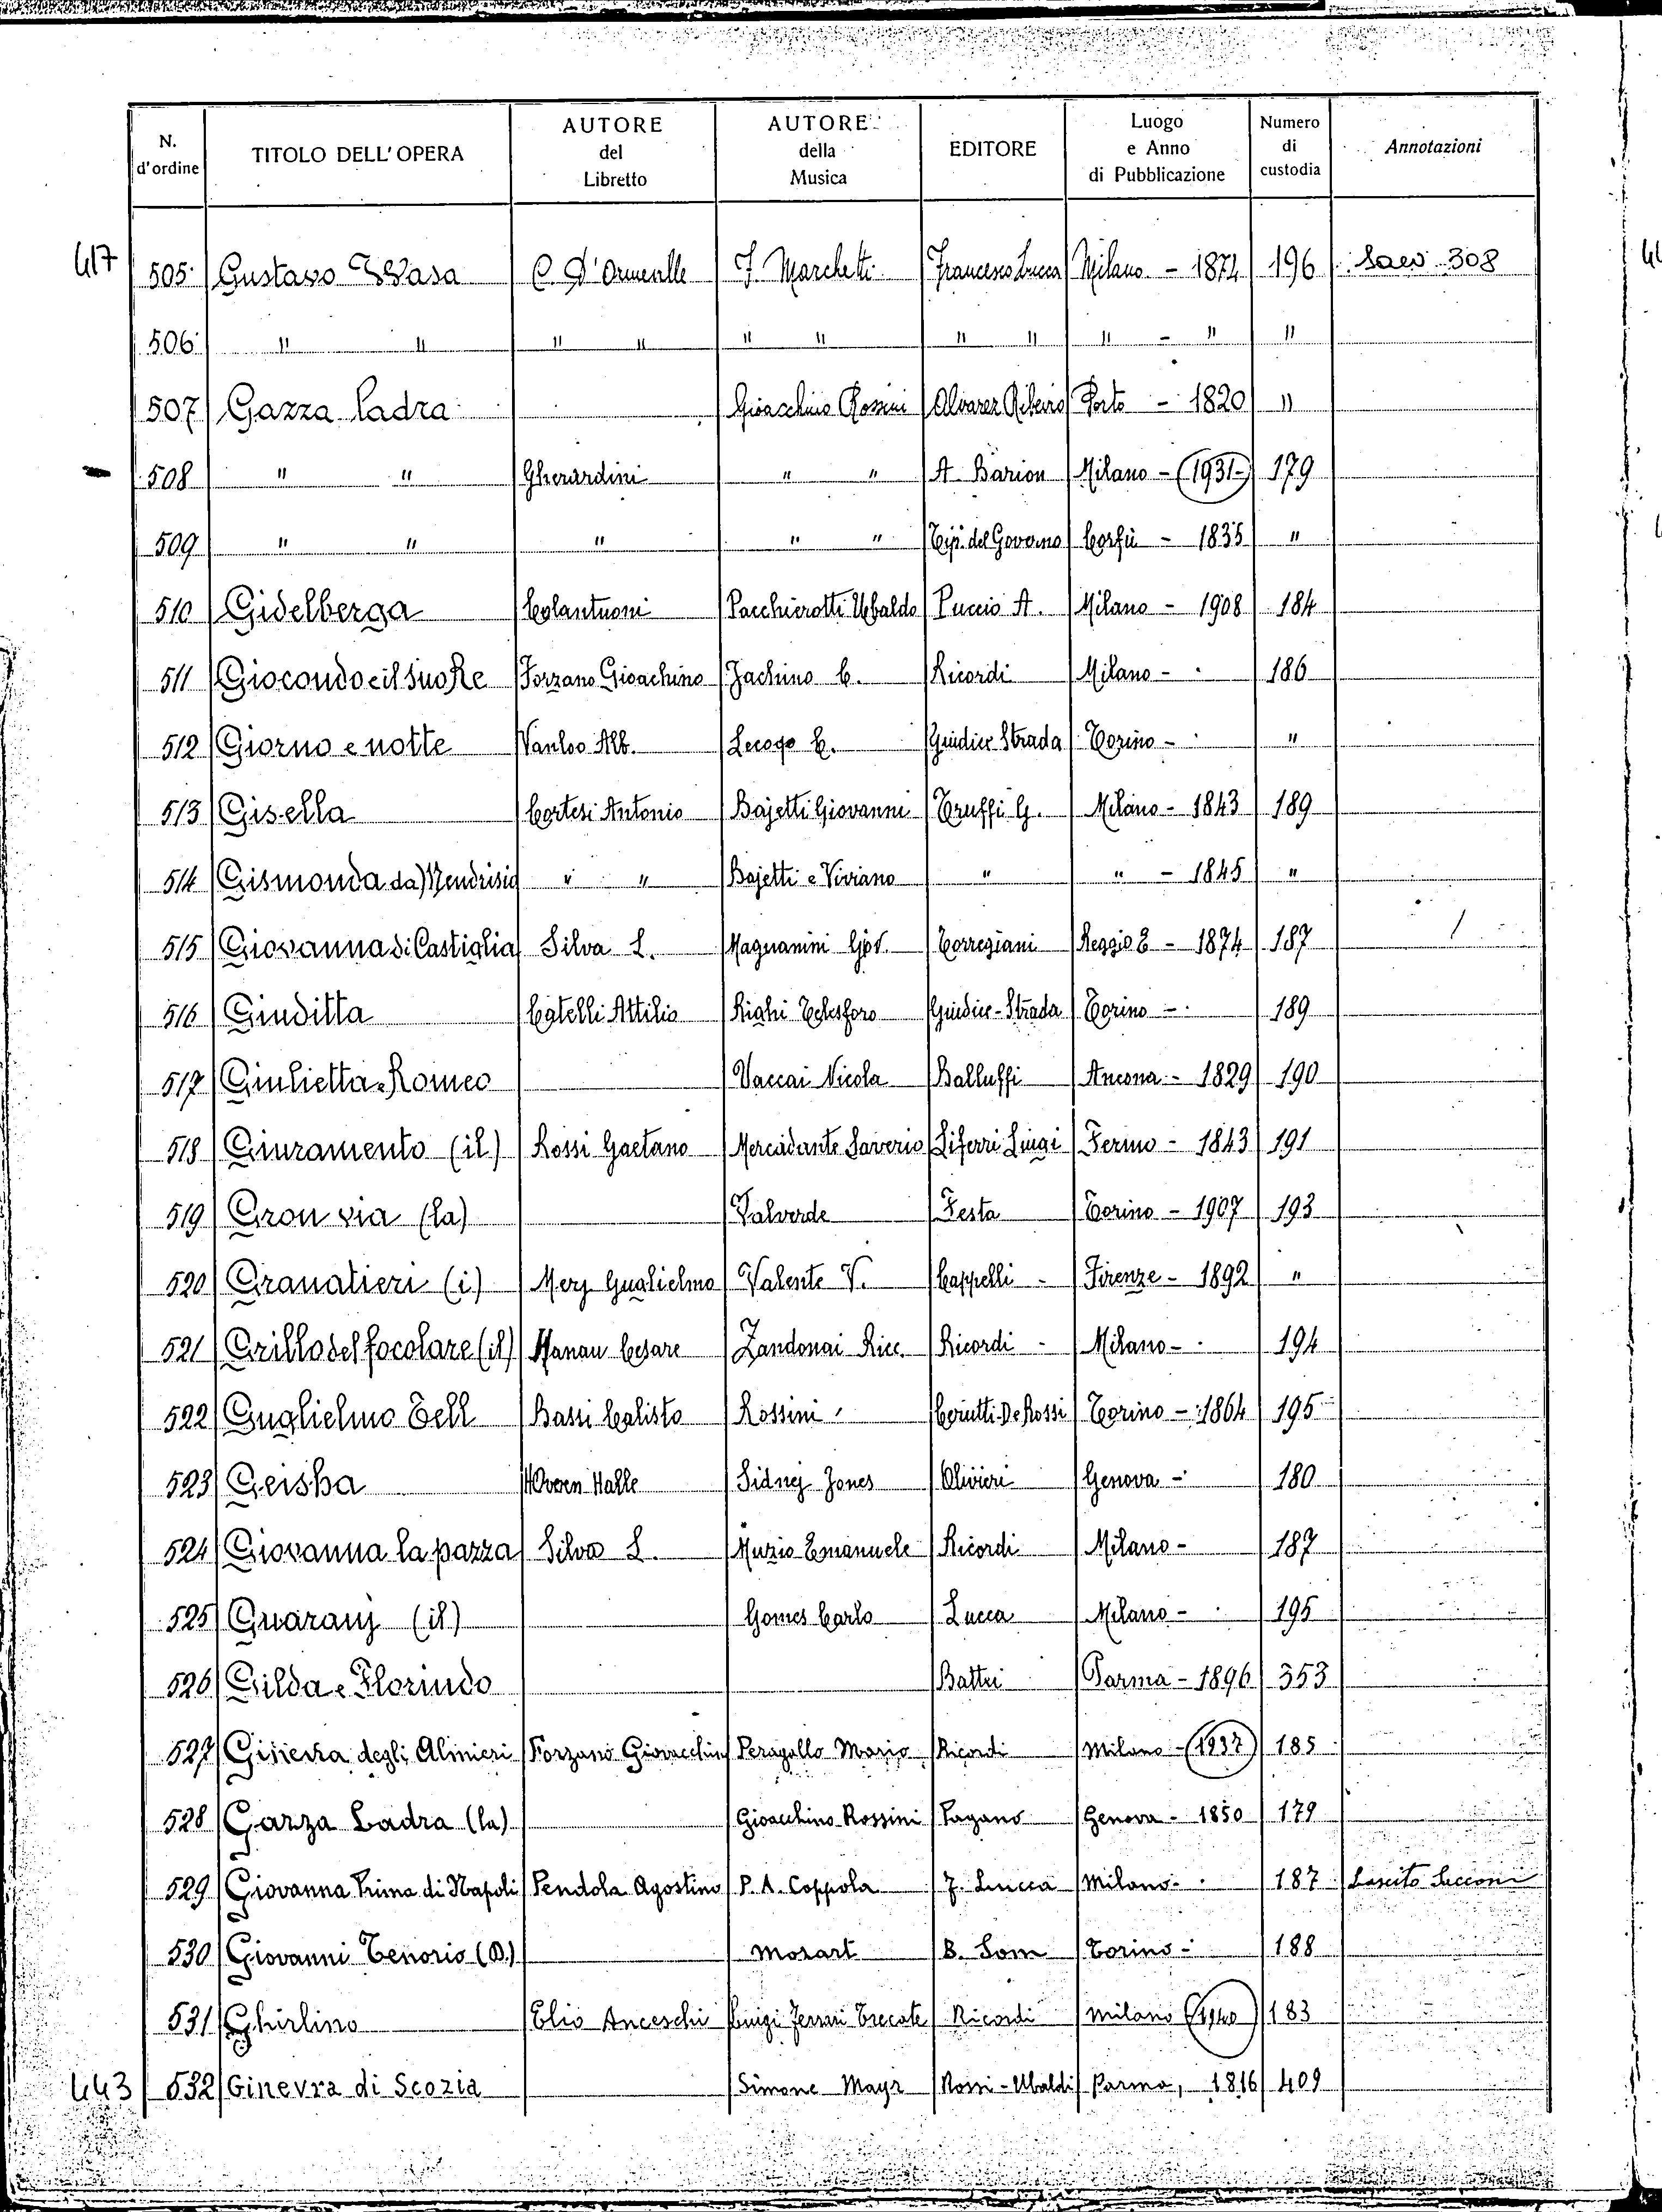 N. d'ordine | TITOLO DELL'OPERA | AUTORE del Libretto | AUTORE della Musica | EDITORE | Luogo e Anno di Pubblicazione | Numero di custodia | Annotazioni
417 505 Gustavo Wasa C. D'Ormeville F. Marchetti Francesco Lucca Milano - 1874 196 308
506 " " " " " " " " " - " "
507 Gazza ladra Gioacchino Rossini Alvarez Ribeiro Porto - 1820 "
508 " " Gherardini " " A. Barion Milano - (1931-) 179
509 " " " " " Tip. del Governo Corfù - 1835 "
510 Gidelberga Colantuoni Pacchierotti Ubaldo Puccio A. Milano - 1908 184
511 Giocondo e il suo Re Forzano Gioachino Jachino C. Ricordi Milano - 186
512 Giorno e notte Vanloo Alb. Lecoqo C. Giudici Strada Torino - "
513 Gisella Cortesi Antonio Bajetti Giovanni Truffi G. Milano - 1843 189
514 Gismonda da Mendrisio " " Bajetti e Viviano " " - 1845 "
515 Giovanna di Castiglia Silva L. Magnanini Giov. Torregiani Reggio E - 1874 187
516 Giuditta Catelli Attilio Righi Telesforo Giudici - Strada Torino - 189
517 Giulietta e Romeo Vaccai Nicola Balluffi Ancona - 1829 190
518 Giuramento (il) Rossi Gaetano Mercadante Saverio Liferri Luigi Fermo - 1843 191
519 Gran via (la) Valverde Festa Torino - 1907 193
520 Granatieri (i) Mery Guglielmo Valente V. Cappelli - Firenze - 1892 "
521 Grillo del focolare (il) Hanau Cesare Zandonai Ricc. Ricordi - Milano - 194
522 Guglielmo Tell Bassi Calisto Rossini Ceriutti-De Rossi Torino - 1864 195
523 Geisha Owen Halle Sidney Jones Olivieri Genova - 180
524 Giovanna la pazza Silva L. Muzio Emanuele Ricordi Milano - 187
525 Guarany (il) Gomes Carlo Lucca Milano - 195
526 Gilda e Florindo Battei Parma - 1896 353
527 Ginevra degli Almieri Forzano Giovacchino Peragallo Mario Ricordi Milano - (1937) 185
528 Gazza Ladra (la) Gioacchino Rossini Pagano Genova - 1850 179
529 Giovanna Prima di Napoli Pendola Agostino P. A. Coppola F. Lucca Milano - 187 Lascito
530 Giovanni Tenorio (D.) Mozart B. Som Torino - 188
531 Ghirlino Elio Anceschi Luigi Ferrari Trecate Ricordi Milano (1940) 183
443 532 Ginevra di Scozia Simone Mayr Rossi - Ubaldi Parma, 1816 409